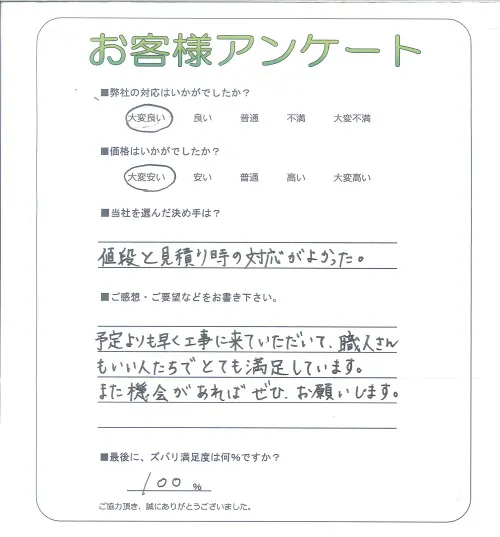 お客様アンケート
■弊社の対応はいかがでしたか？
大変良い 良い 普通 不満 大変不満
■価格はいかがでしたか？
大変安い 安い 普通 高い 大変高い
■当社を選んだ決め手は？
値段と見積り時の対応がよかった。
■ご感想・ご要望などをお書き下さい。
予定よりも早く工事に来ていただいて、職人さん
もいい人たちでとても満足しています。
また機会があればぜひ、お願いします。
■最後に、ズバリ満足度は何%ですか？
100 %
ご協力頂き、誠にありがとうございました。